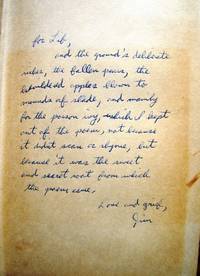 for Lib,
and the ground's delicate
rules, the fallen pears, the
apples blown to
mounds of shade, and mainly
for the poison ivy, which I kept
out of the poem, not because
it didn't scan or rhyme, but
because it was the sweet
and secret root from which
the poem came,
Love and grief,
Jim